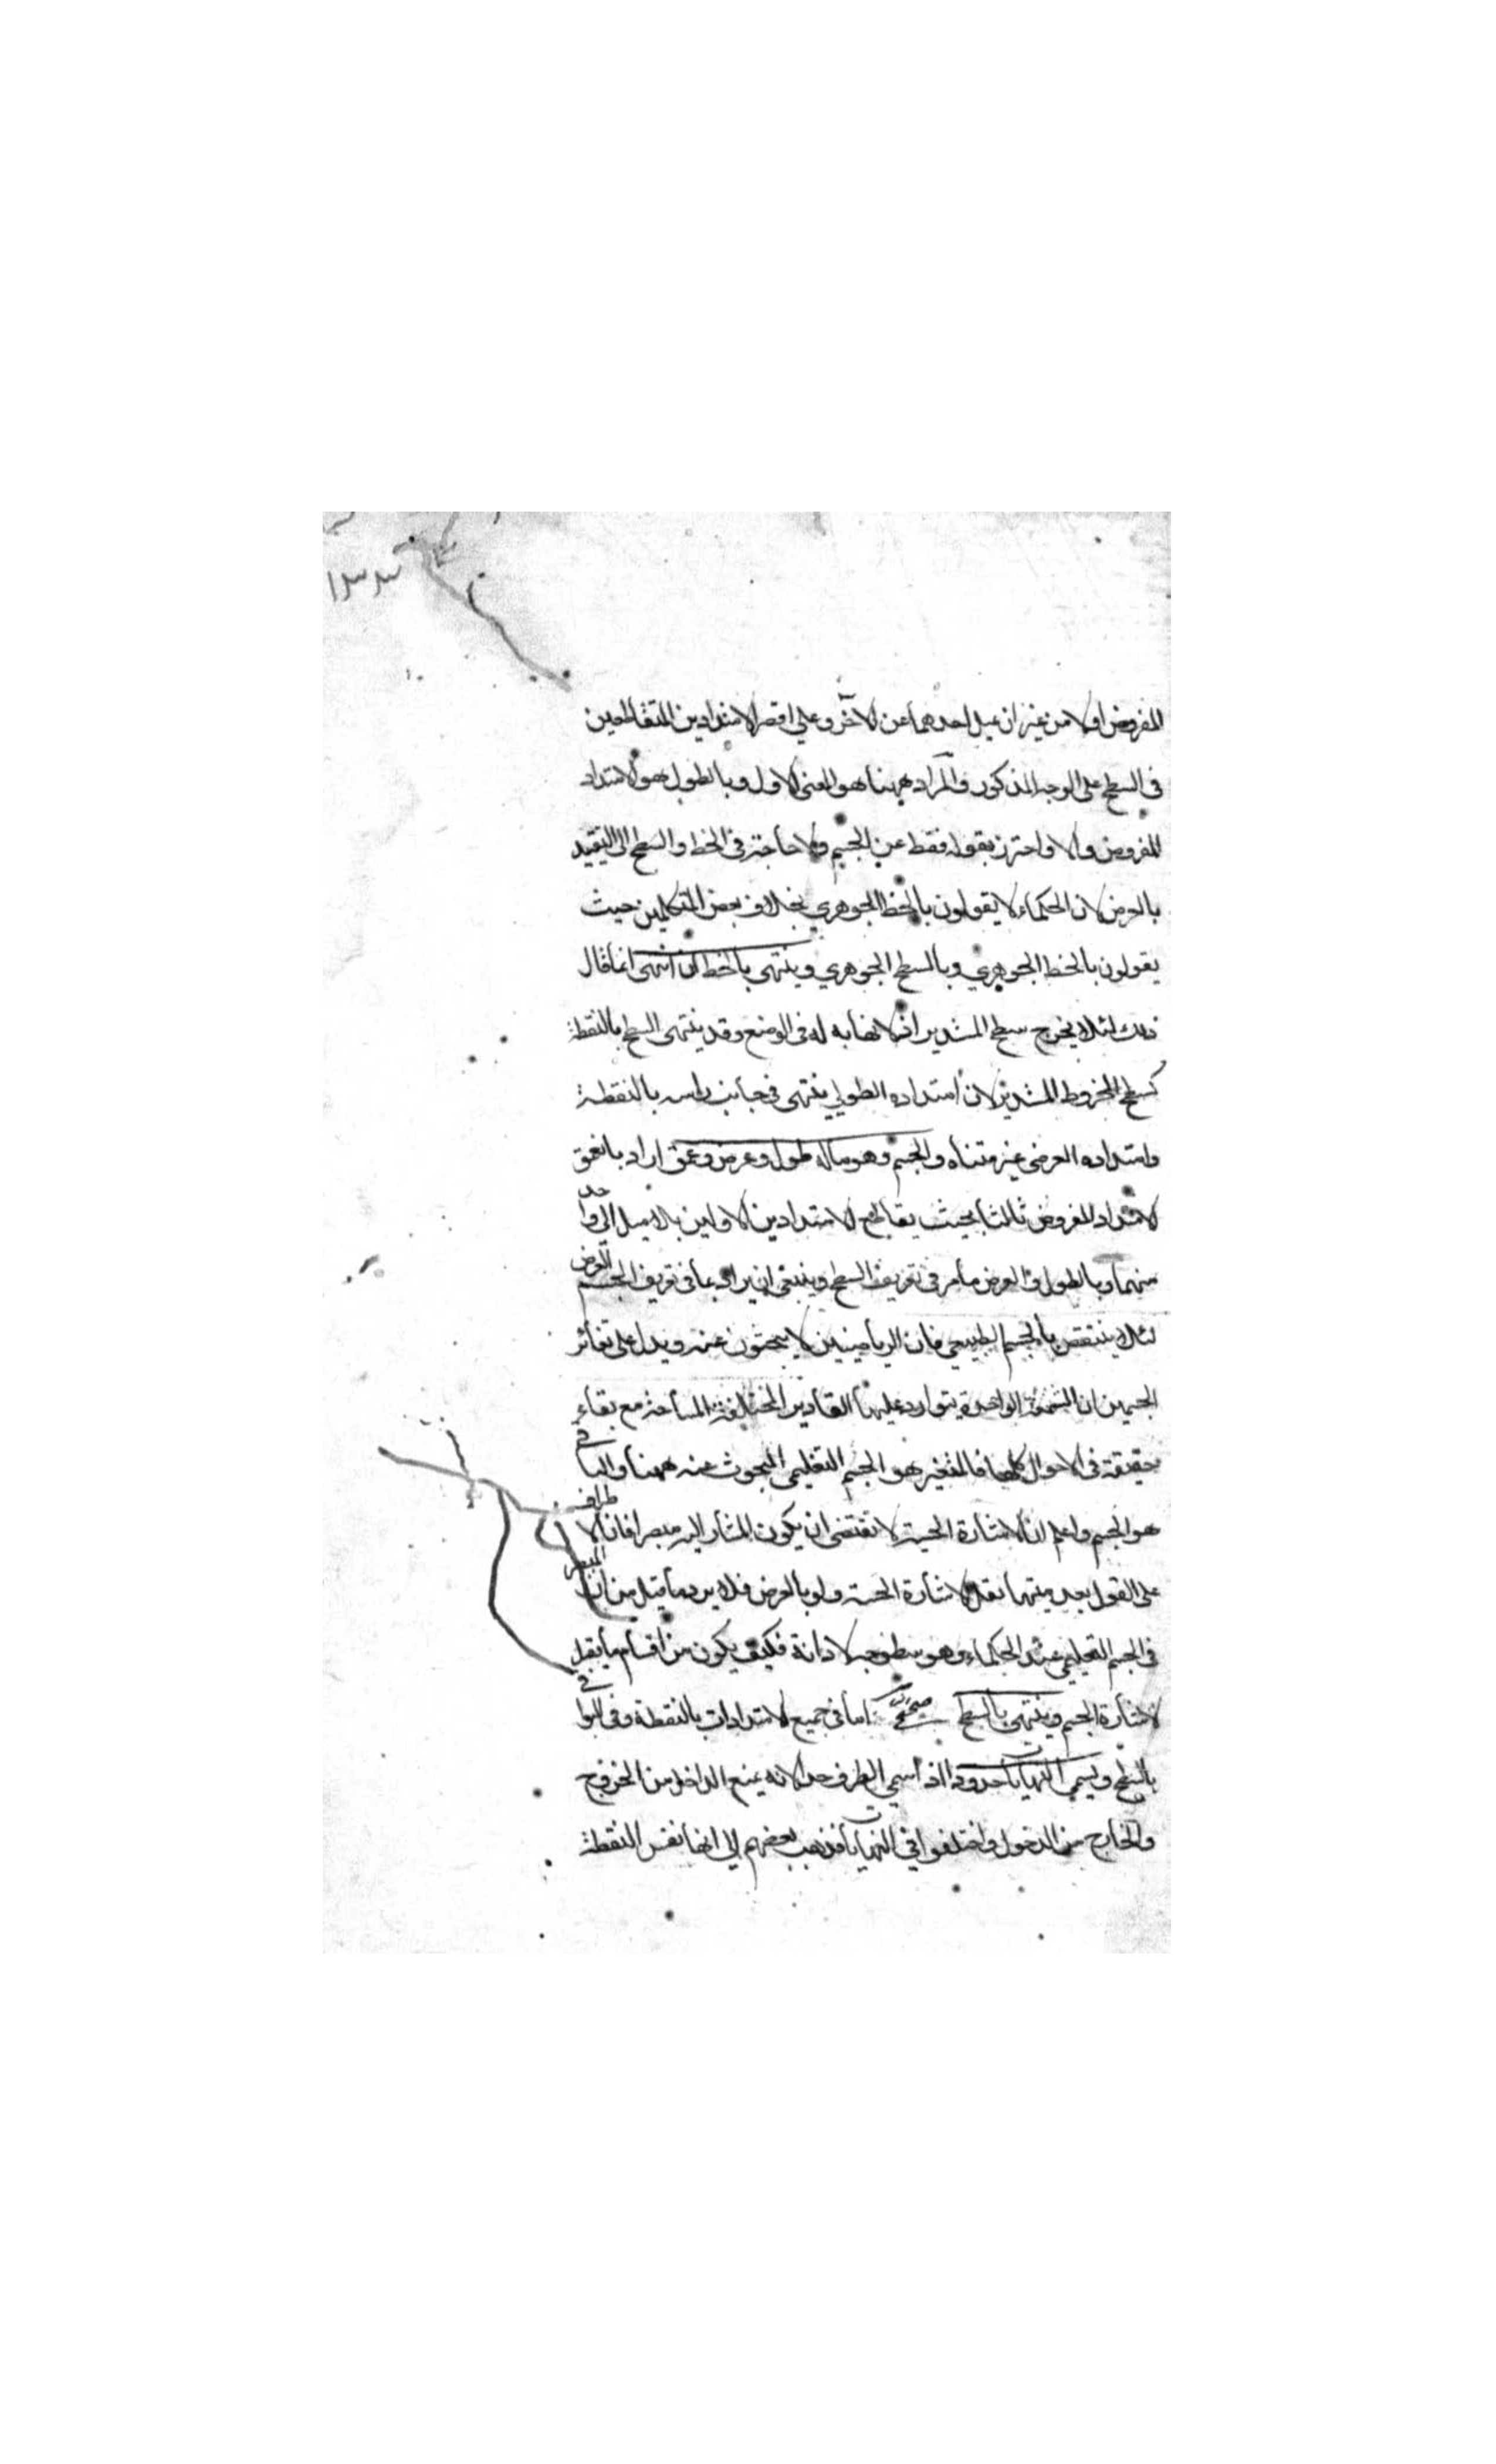 المفروض اولا من غير ان يميل احدهما عن الآخر وعلى اقصر الامتدادين المتقاطعين
في السطح على الوجه المذكور والمراد ههنا هو المعنى الاول وبالطول هو الامتداد
المفروض والا واحترز بقوله فقط عن الجسم ولا حاجة في الخط والسطح الى التقييد
بالعرض لان الحكماء لا يقولون بالخط الجوهري بخلاف بعض المتكلمين حيث
يقولون بالخط الجوهري وبالسطح الجوهري وينتهى بالخط ان انتهى انما قال
ذلك لئلا يخرج سطح المستدير اذ لا نهاية له في الوضع وقد ينتهى السطح بالنقطة
كسطح المخروط المستدير لان امتداده الطولي ينتهى في جانب راسه بالنقطة
وامتداده العرضي غير متناه والجسم وهو ماله طول وعرض وعمق اراد بالعمق
الامتداد المفروض ثالثا بحيث يقاطع الامتدادين الاولين بلا ميل الى واحد
منهما وبالطول والعرض ما مر في تعريف السطح وينبغي ان يراد بما في تعريف الجسم العرض
لئلا ينتقض بالجسم الطبيعي فان الرياضيين لا يبحثون عنه ويدل على تغائر
الجسمين ان الشمعة الواحدة يتوارد عليها المقادير المختلفة المساحة مع بقاء
حقيقته في الاحوال كلها فالمتغير هو الجسم التعليمي المبحوث عنه ههنا والباقي
هو الجسم واعلم ان الاشارة الحسية لا تقتضى ان يكون المشار اليه مبصرا فان الاطراف
على القول بعدميتها تقبل الاشارة الحسية ولو بالعرض فلا يرد ما قيل من ان المبصر
في الجسم التعليمي عند الحكماء هو سطوحه لا ذاته فكيف يكون من اقسام ما يقبل
الاشارة الجسم وينتهى بالسطح اما في جميع الامتدادات بالنقطة وفي البواقي
بالسطح ويسمى النهايات حدودا اذ اسمي الطرف حدا لانه يمنع الداخل من الخروج
والخارج من الدخول واختلفوا في النهايات فذهب بعضهم الى انها نفس النقطة